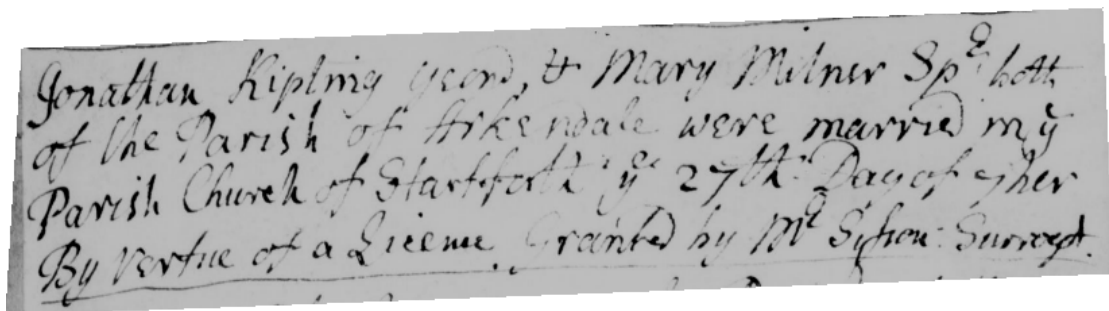 Jonathan Kipling yeom, & Mary Milner Spr both
of the Parish of Arkendale were married in ye
Parish Church of Startforth ye 27th Day of 9ber
By Vertue of a Licence Granted by Mr Sisson Surrogt